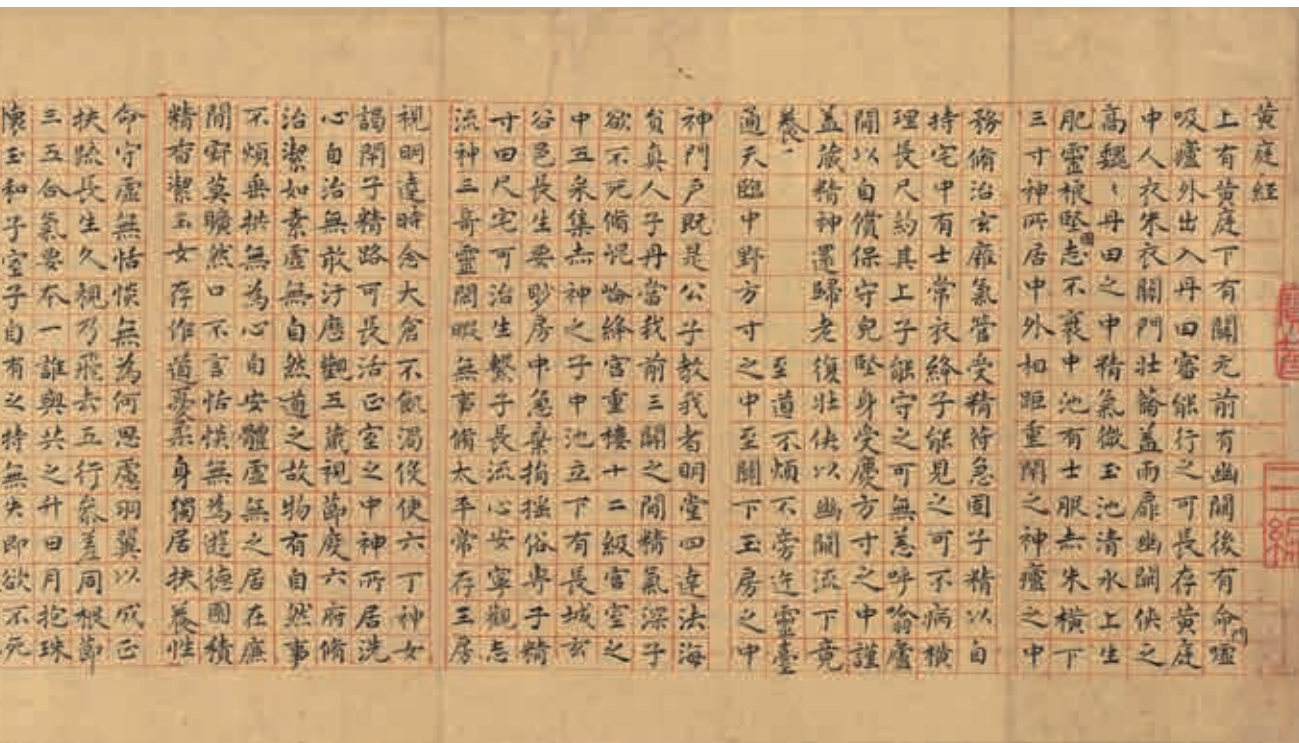 黄庭経
上有黄庭下有關元前有幽關後有命門嘘
吸廬外出入丹田審能行之可長存黄庭
中人衣朱衣關門壮籥盖兩扉幽闕俠之
高魏〻丹田之中精氣微玉池清水上生
肥靈根堅固志不衰中池有士服赤朱横下
三寸神所居中外相距重閉之神廬之中
務脩治玄廱氣管受精符急固子精以自
持宅中有士常衣絳子能見之可不病横
理長尺約其上子能守之可無恙呼噏廬
間以自償保守皃堅身受慶方寸之中謹
盖蔵精神還歸老復壮俠以幽闕流下竟
養、至道不煩不旁迕靈臺
通天臨中野方寸之中至關下玉房之中
神門户既是公子教我者明堂四達法海
負真人子丹當我前三關之間精氣深子
欲不死脩崐崘絳宮重樓十二級宮室之
中五采集赤神之子中池立下有長城玄
谷邑長生要眇房中急棄捐揺俗専子精
寸田尺宅可治生繋子長流心安寧觀志
流神三奇靈閑暇無事脩太平常存玉房
視明達時念大倉不飢渇役使六丁神女
謁閉子精路可長活正室之中神所居洗
心自治無敢汙歴觀五蔵視節度六府脩
治潔如素虚無自然道之故物有自然事
不煩垂拱無為心自安體虚無之居在廉
間寂莫曠然口不言恬惔無為遊徳園積
精香潔玉女存作道憂柔身獨居扶養性
命守虚無恬惔無為何思慮羽翼以成正
扶疏長生久視乃飛去五行參差同根節
三五合氣要本一誰與共之升日月抱珠
懐玉和子室子自有之持無失即欲不死